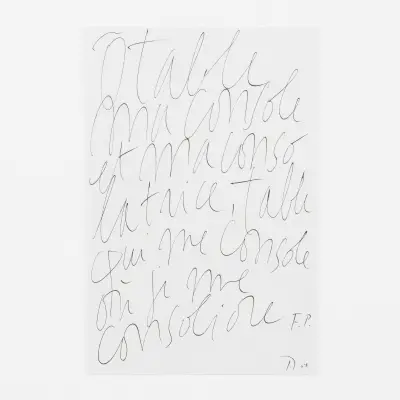 Ô table
ma console
et ma conso
latrice, table
qui me console
où je me
consolide F.P.